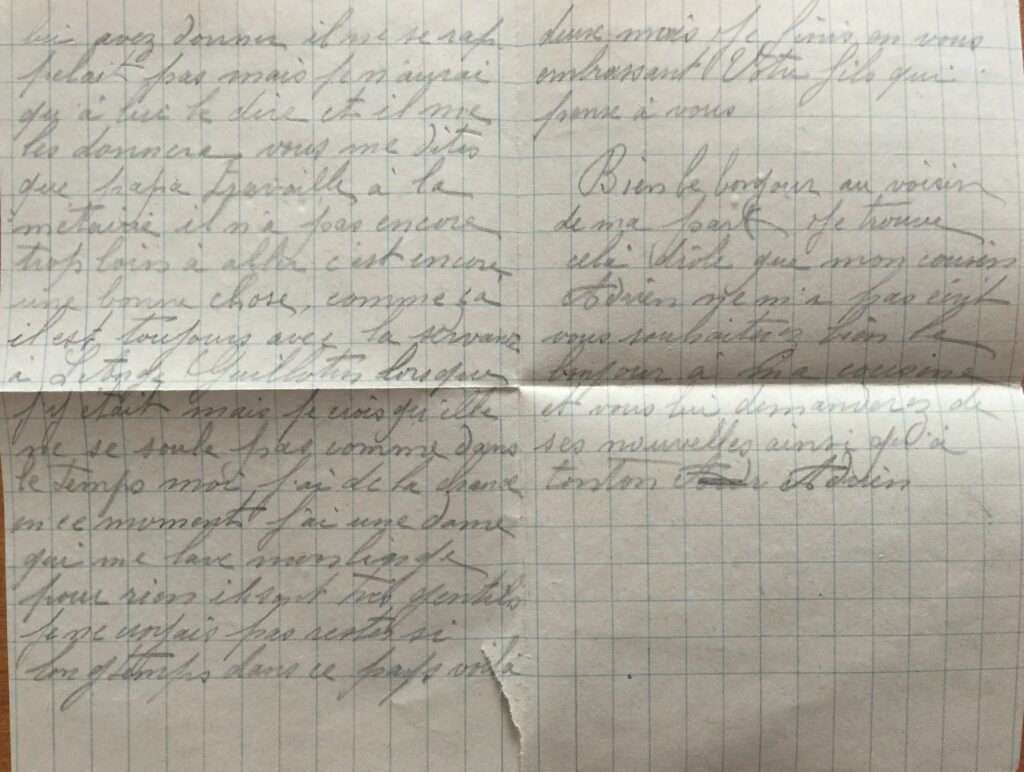 lui avez donner il ne se rap
pelait pas mais je n'aurai
qu'à lui le dire et il me
les donnera vous me dites
que papa travaille à la
métairie il n'a pas encore
trop loin à aller c'est encore
une bonne chose, comme ça
il est toujours avec la servante
a Guillotin lorsque
j'y était mais je crois qu'elle
ne se soule pas comme dans
le temps moi j'ai de la chance
en ce moment j'ai une dame
qui me lave mon linge
pour rien ils sont très gentils
je ne croyais pas rester si
longtemps dans ce pays voilà
deux mois Je finis en vous
embrassant Votre fils qui
pense à vous
Bien le bonjour au voisin
de ma part Je trouve
cela drôle que mon cousin
Adrien ne m'a pas écrit
vous souhaiterez bien le
bonjour à Ma cousine
et vous lui demanderez de
ses nouvelles ainsi qu'à
tonton Adrien